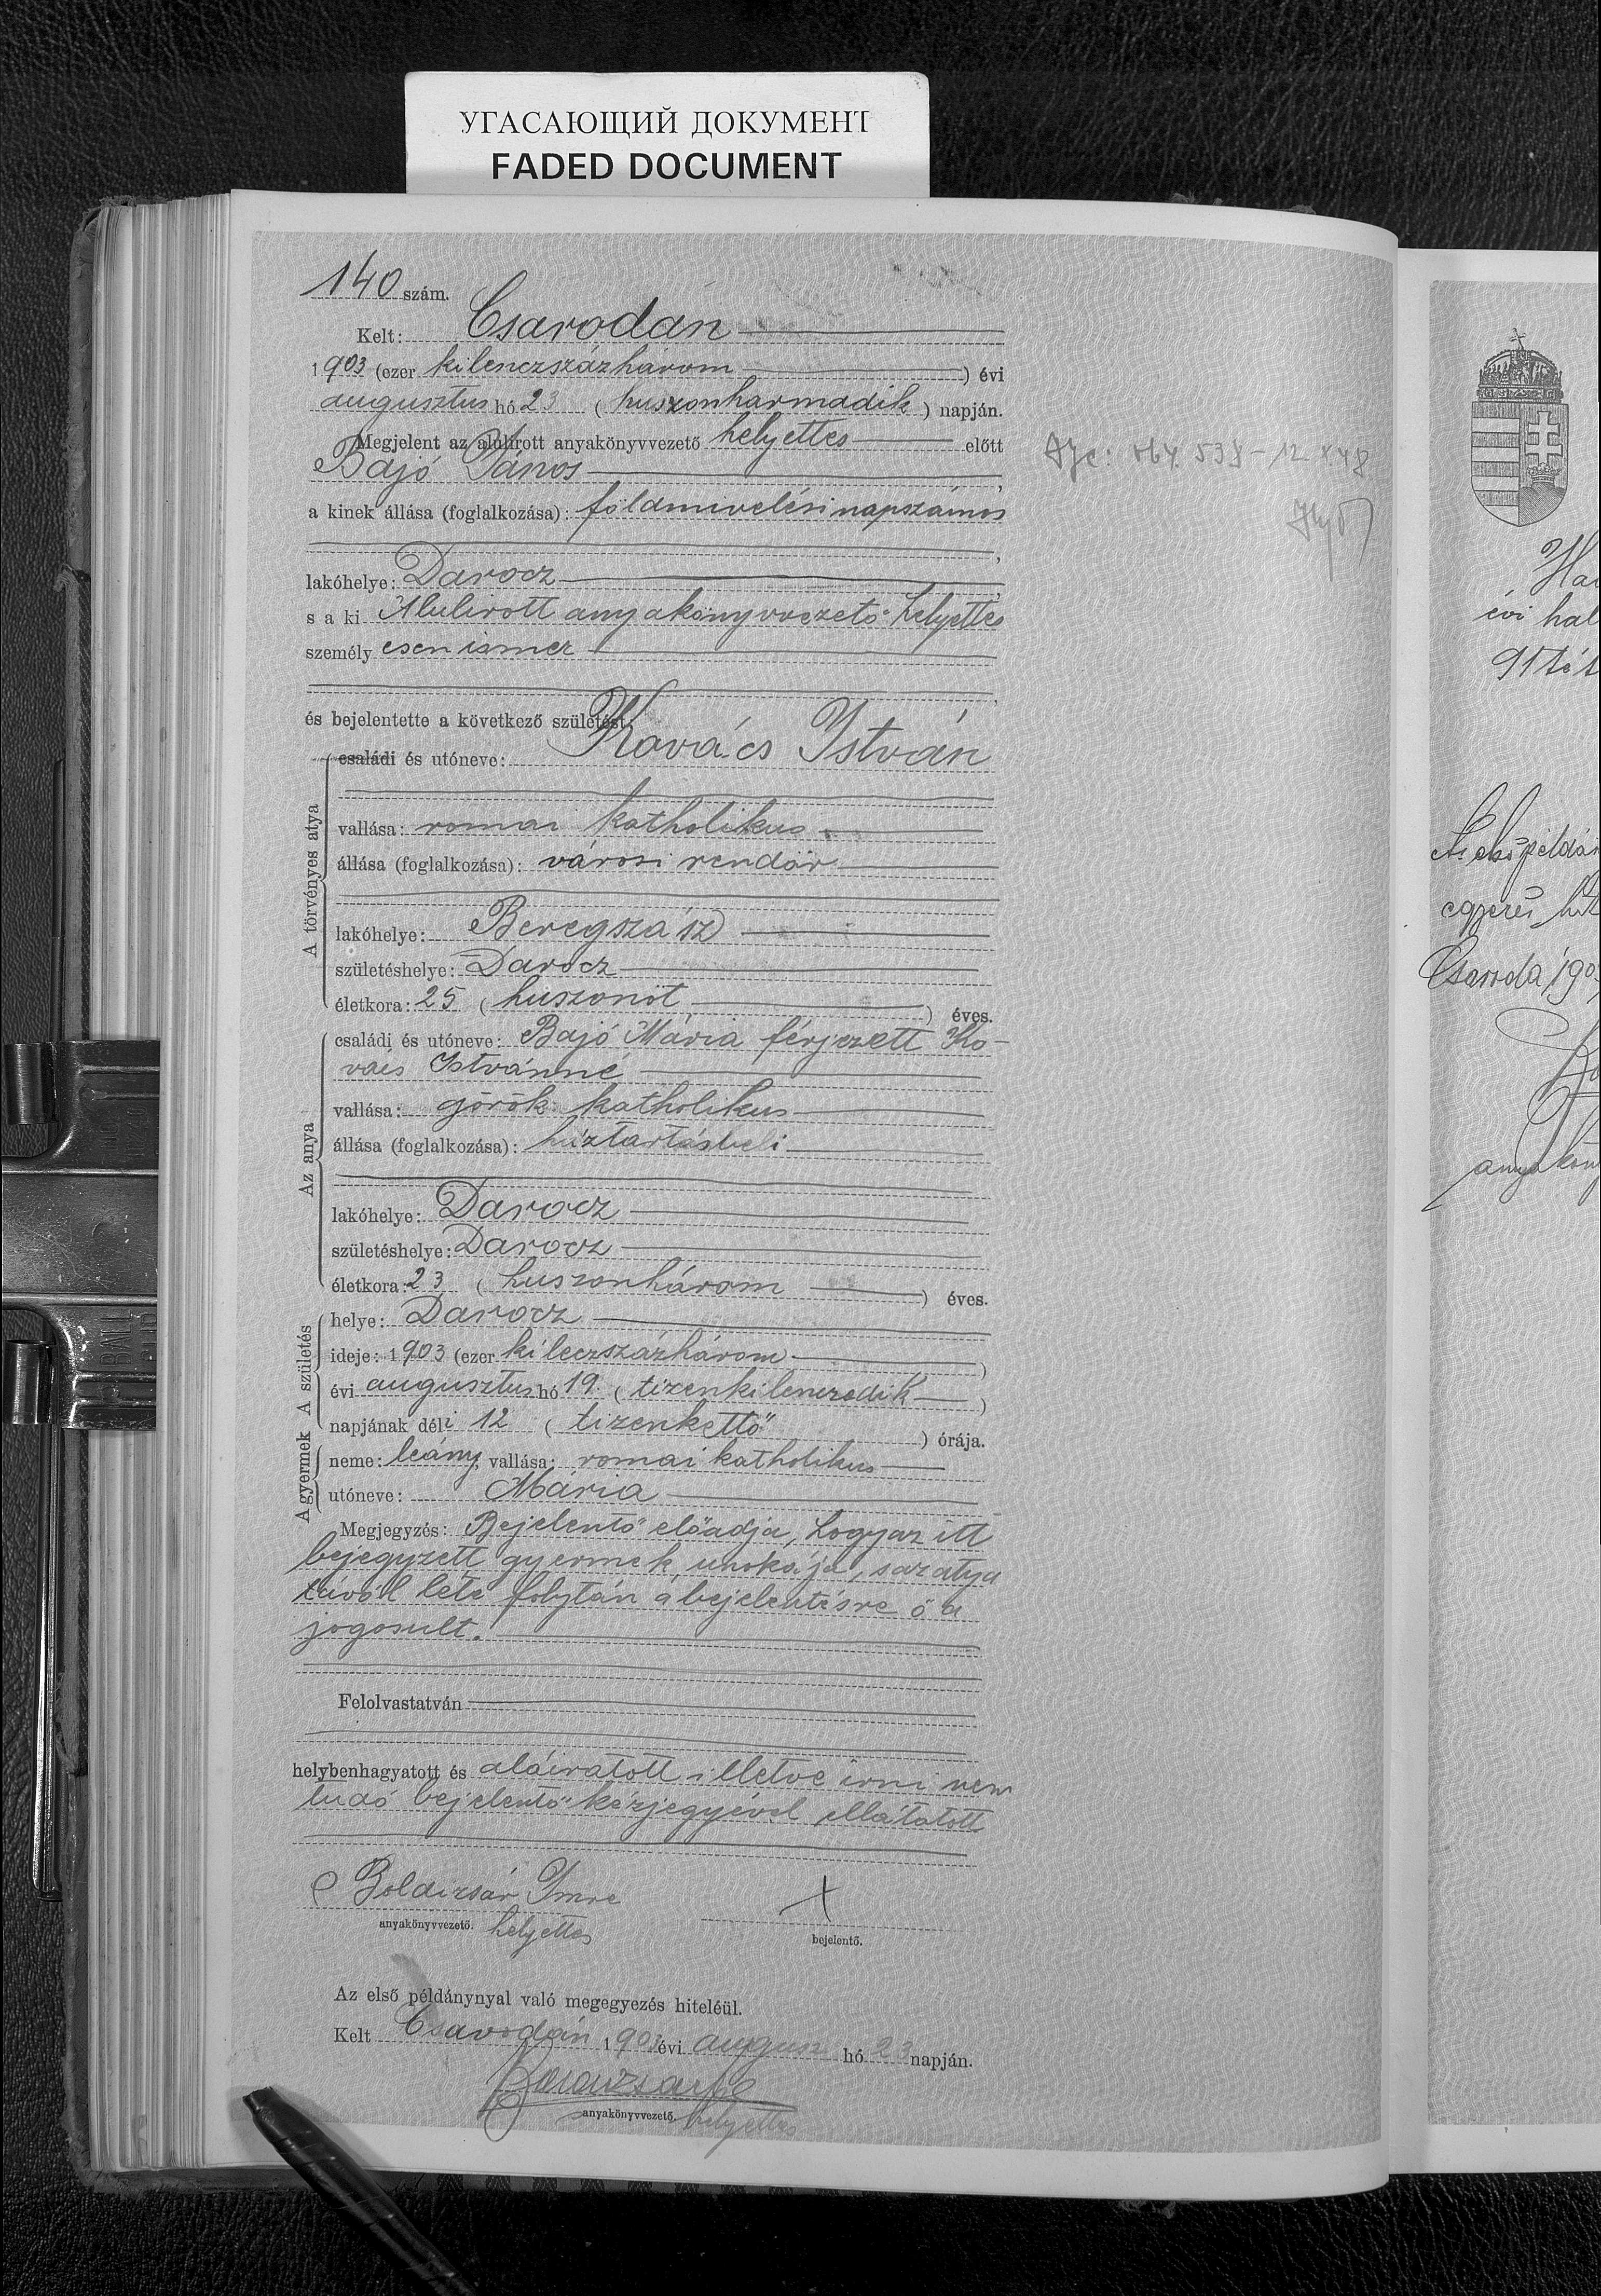 УГАСАЮЩИЙ ДОКУМЕНТ
FADED DOCUMENT
140 szám.
Kelt: Csarodán
1903 (ezer kilenczszázhárom) évi
augusztus hó 23 (huszonharmadik) napján.
Megjelent az alulírott anyakönyvvezető helyettes előtt
Bajó János,
a kinek állása (foglalkozása): földmivelési napszámos
,
lakóhelye: Darocz,
s a ki Alulirott anyakönyvvezető helyettes
személy esen ismer
,
és bejelentette a következő születést:
A törvényes atya
családi és utóneve: Kovács István
vallása: romai katholikus
állása (foglalkozása): városi rendőr
lakóhelye: Beregszász
születéshelye: Darocz
életkora: 25 (huszonöt) éves.
Az anya
családi és utóneve: Bajó Mária férjezett Ko-
vács Istvánné
vallása: görök katholikus
állása (foglalkozása): háztartásbeli
lakóhelye: Darocz
születéshelye: Darocz
életkora: 23 (huszonhárom) éves.
A születés
helye: Darocz
ideje: 1903 (ezer kileczszázhárom)
évi augusztus hó 19. (tizenkilenczedik)
napjának déli 12 (tizenkettő) órája.
A gyermek
neme: leány, vallása: romai katholikus
utóneve: Mária
Megjegyzés: Bejelentő előadja, hogy az itt
bejegyzett gyermek unokája, s az atya
távól léte folytán a bejelentésre ő a
jogosult.
Felolvastatván
helybenhagyatott és aláiratott illetve irni nem
tudó bejelentő kézjegyével ellátatott
Boldizsár Imre
anyakönyvvezető. helyettes
X
bejelentő.
Az első példánynyal való megegyezés hiteléül.
Kelt Csarodán 1903 évi augusz hó 23 napján.
anyakönyvvezető. helyettes
538 - 12
évi hal
Az első példán
egyezés hit
Csaroda 190
anyakönyv